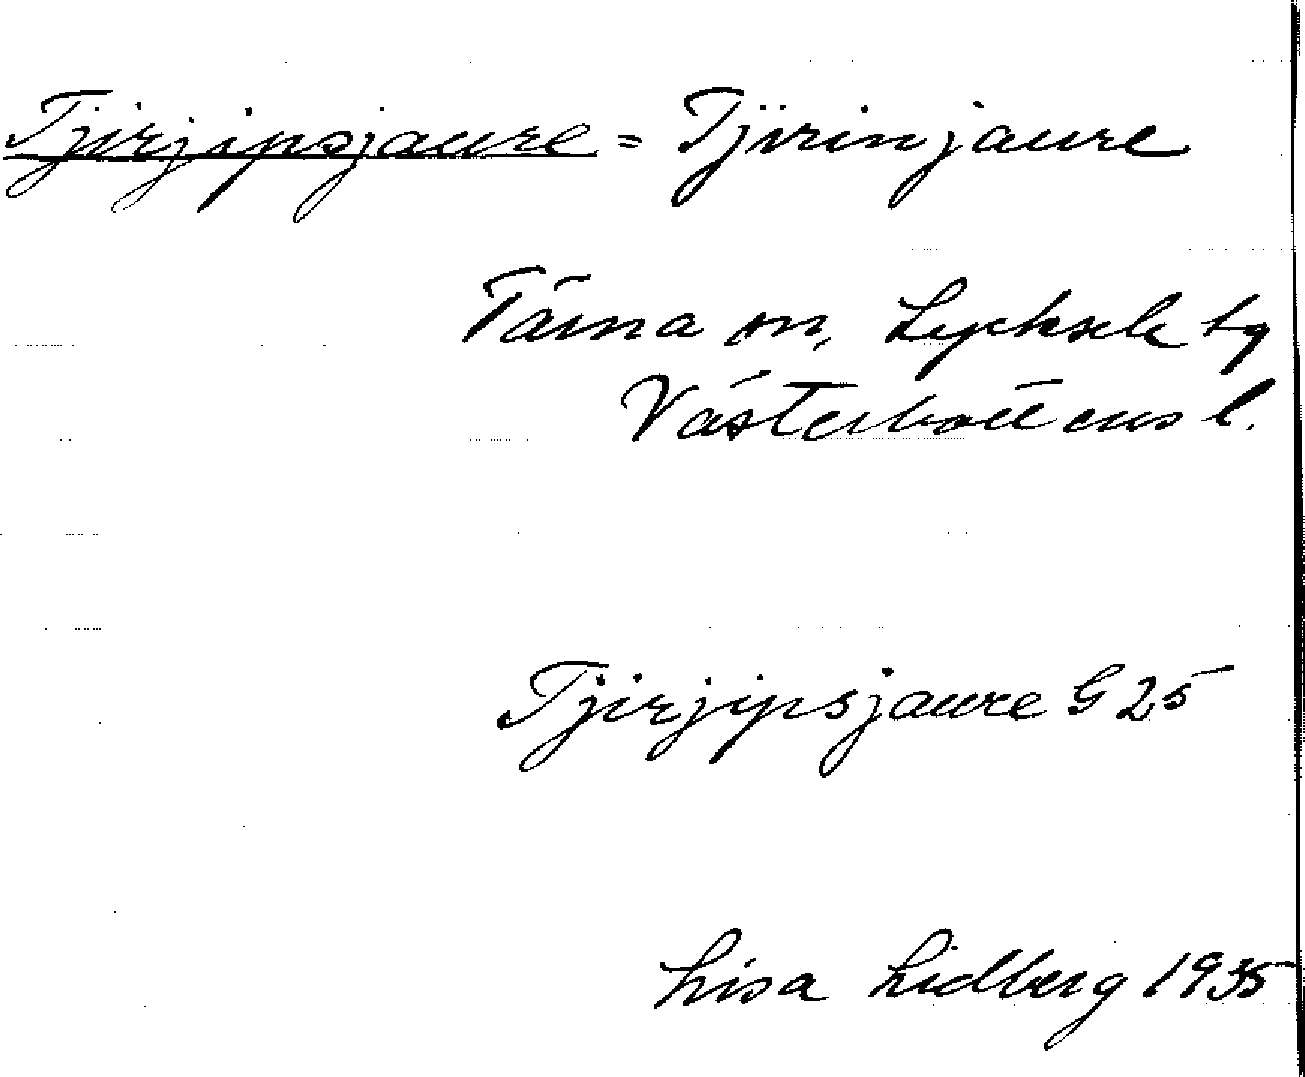 Tjirjipsjaure = Tjirinjaure
Tärna sn, Lycksele tg
Västerbottens l.
Tjirjipsjaure G 25
Lisa Lidberg 1935